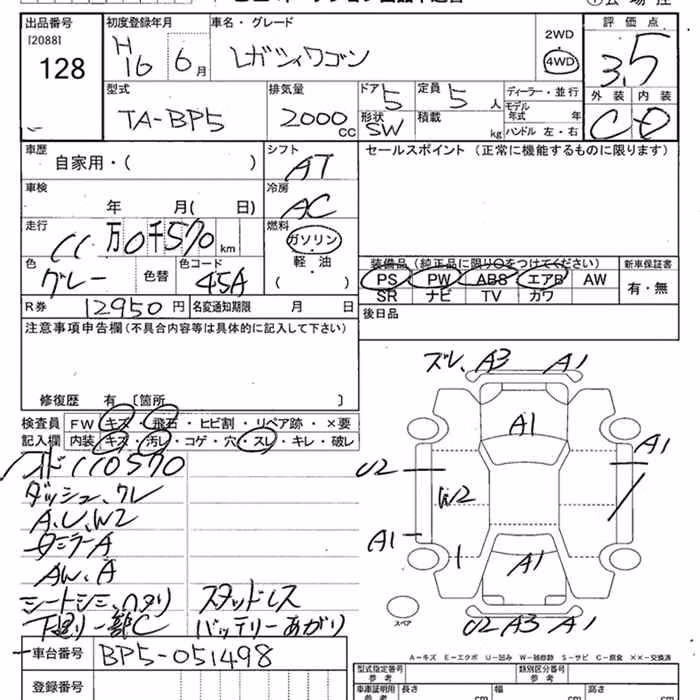 出品番号 初度登録年月 車名・グレード 評価点
[2088]
128
H16 6月 レガシィワゴン 2WD 4WD 3.5
外装 内装
C D
型式 排気量 ドア 定員 ディーラー・並行
TA-BP5 2000cc 5 5人
形状 積載 モデル年式 年
SW kg ハンドル 左・右
車歴 シフト セールスポイント (正常に機能するものに限ります)
自家用・( ) AT
車検 冷房
年 月( 日) AC
走行 燃料
11万0千570km ガソリン
軽・油
( )
色 色替 色コード
グレー 45A
装備品(純正品に限り○をつけてください) 新車保証書
PS PW ABS エアB AW 有・無
SR ナビ TV カワ
R券 12950円 名変通知期限 月 日
後日品
注意事項申告欄(不具合内容等は具体的に記入して下さい)
修復歴 有〔箇所 〕
検査員記入欄
FW キズ・飛石・ヒビ割・リペア跡・×要
内装 キズ・汚レ・コゲ・穴・スレ・キレ・破レ
ズレ、A3 A1
A1
A1
U2
W2
A1
A1
U2 A3 A1
スペア
メーター110570
ダッシュ、クレ
A、U、W2
ダミラーA
AW、A
シートシミ、ヘタリ スタッドレス
下廻り一部C バッテリーあがり
A-キズ E-エクボ U-凹み W-補修跡 S-サビ C-腐食 ××-交換済
車台番号 BP5-051498
登録番号
型式指定番号 類別区分番号
車庫証明用 長さ cm 幅 cm 高さ cm